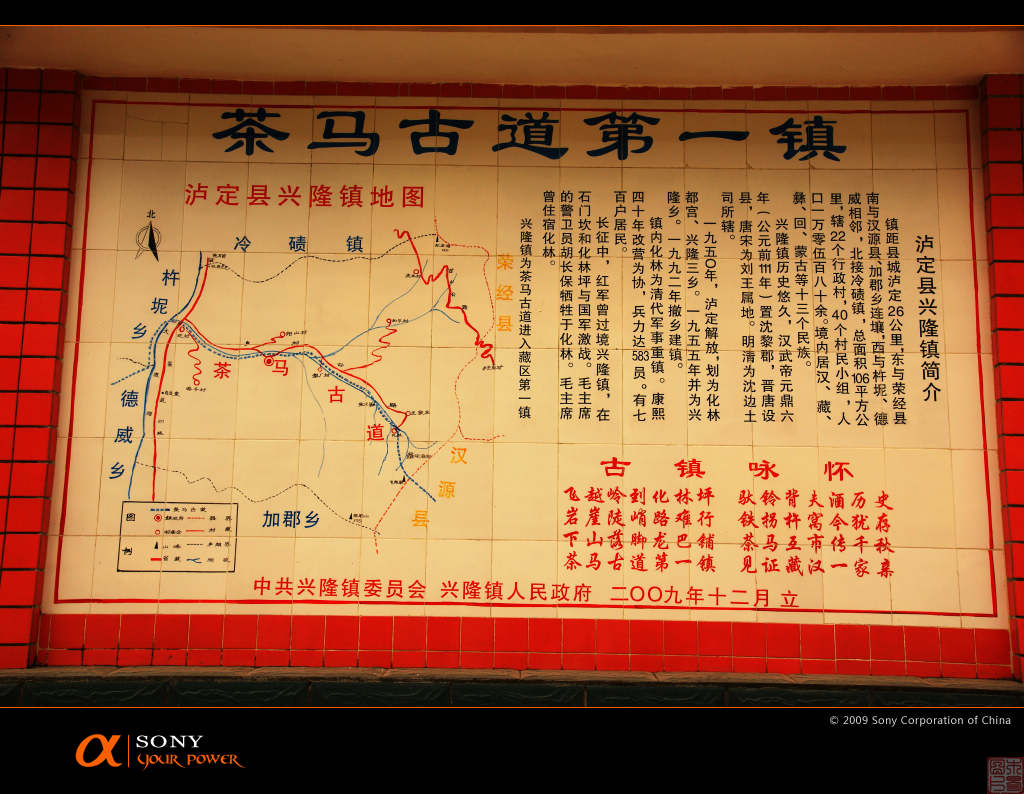 茶马古道第一镇
泸定县兴隆镇地图
泸定县兴隆镇简介
镇距县城泸定26公里,东与荣经县
南与汉源县、加郡乡连壤,西与杵坭、德
威相邻,北接冷碛镇,总面积106平方公
里,辖22个行政村,40个村民小组,人
口一万零伍百八十余,境内居汉、藏、
彝、回、蒙古等十三个民族。
兴隆镇历史悠久,汉武帝元鼎六
年(公元前111年)置沈黎郡,晋唐设
县,唐宋为刘王属地。明清为沈边土
司所辖。
一九五〇年,泸定解放,划为化林
都宫、兴隆三乡。一九五五年并为兴
隆乡。一九九二年撤乡建镇。
镇内化林为清代军事重镇。康熙
四十年改营为协,兵力达583员。有七
百户居民。
长征中,红军曾过境兴隆镇,在
石门坎和化林坪与国军激战。毛主席
的警卫员胡长保牺牲于化林。毛主席
曾住宿化林。
兴隆镇为茶马古道进入藏区第一镇
北
冷碛镇
杵坭乡
荣经县
茶马古道
德威乡
汉源县
加郡乡
图例
古镇咏怀
飞越岭到化林坪 驮铃背夫酒历史
岩崖陡峭路难行 铁拐杵窝今犹存
下山荡脚龙巴铺 茶马互市传千秋
茶马古道第一镇 见证藏汉一家亲
中共兴隆镇委员会 兴隆镇人民政府 二〇〇九年十二月 立
© 2009 Sony Corporation of China
α SONY
YOUR POWER